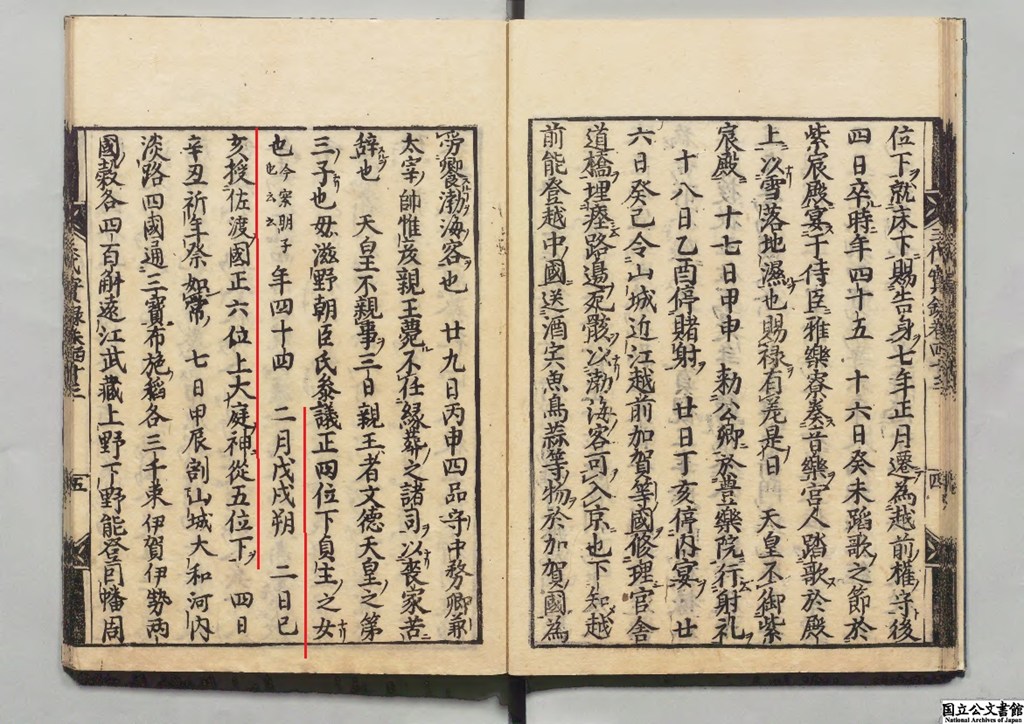 位下就床下賜告身七年正月遷為越前權守後
四日卒時年四十五 十六日癸未踏歌之節於
紫宸殿宴于侍臣雅樂寮奏音樂宮人踏歌於殿
上以雪落地濕也賜禄有差是日 天皇不御紫
宸殿 十七日甲申 勑公卿於豊樂院行射礼
十八日乙酉停賭射 廿日丁亥停内宴 廿
六日癸己令山城近江越前加賀等國修理官舎
道橋埋瘞路邉死骸以渤海客可入京也下知越
前能登越中國送酒宍魚鳥蒜等物於加賀國為
労饗渤海客也 廿九日丙申四品守中務卿兼
太宰帥惟彦親王薨不任縁葬之諸司以喪家苦
辞也 天皇不親事三日親王者文徳天皇之第
三子也母滋野朝臣氏参議正四位下貞主之女
也 今案明子也云云 年四十四 二月戊戌朔 二日己
亥授佐渡國正六位上大庭神從五位下 四日
辛丑祈年祭如常 七日甲辰割山城大和河内
淡路四國通三寶布施稲各三千束伊賀伊勢両
國穀各四百斛遠江武藏上野下野能登因幡周
三代實録巻四十三
四
三代實録巻四十三
五
国立公文書館
National Archives of Japan